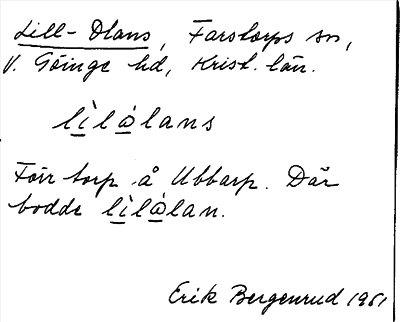 Lill-Olans, Farstorps sn,
V. Göinge hd, Krist. län.
lìlòlans
Förr torp å Ubbarp. Där
bodde lìlòlan.
Erik Bergenrud 1961